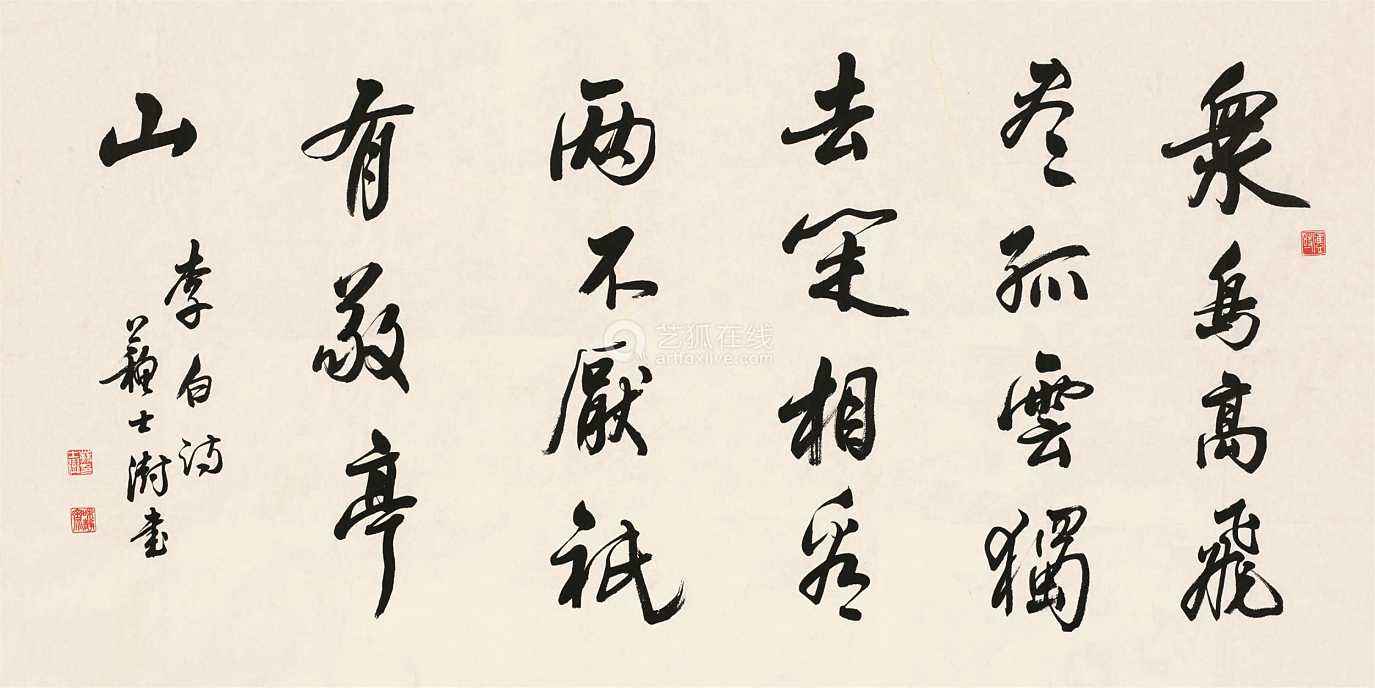 衆鳥高飛
尽孤雲獨
去閑相看
两不厭祇
有敬亭
山
李白詩
蘇士澍書
艺狐在线
artfoxlive.com